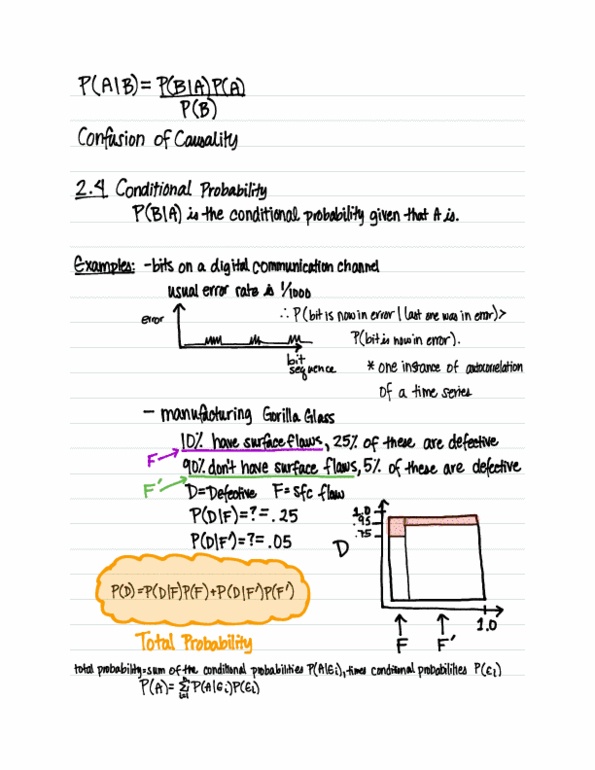 P(A|B) = P(B|A)P(A)
P(B)
Confusion of Causality
2.4 Conditional Probability
P(B|A) is the conditional probability given that A is.
Examples: -bits on a digital communication channel
usual error rate is 1/1000
error
∴ P(bit is now in error | last one was in error)>
P(bit is now in error).
bit
sequence
* one instance of autocorrelation
of a time series
- manufacturing Gorilla Glass
10% have surface flaws, 25% of these are defective
F
90% don't have surface flaws, 5% of these are defective
F'
D=Defective F=sfc flaw
P(D|F)=?=.25
P(D|F')=?=.05
1.0
.95
.75
D
F F' 1.0
P(D)=P(D|F)P(F)+P(D|F')P(F')
Total Probability
total probability=sum of the conditional probabilities P(A|Ei), times conditional probabilities P(Ei)
P(A)= n Σ i=1 P(A|Ei)P(Ei)